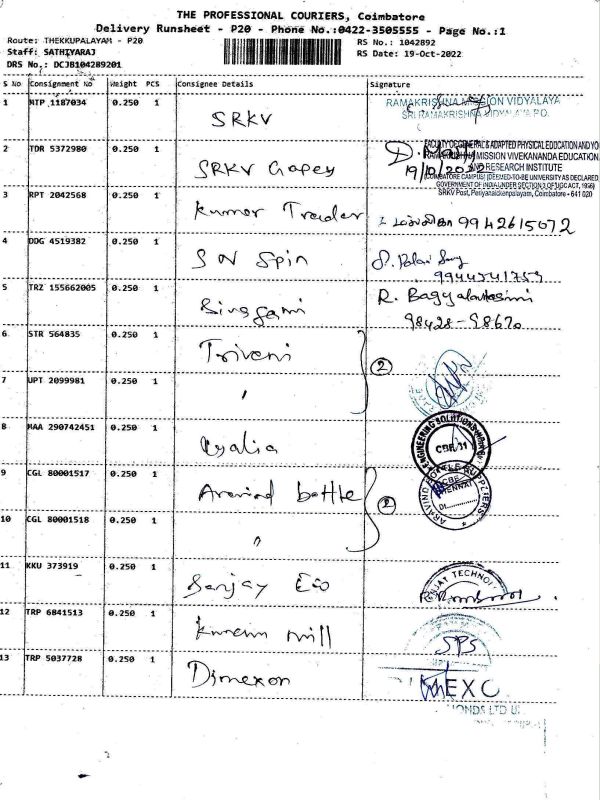 THE PROFESSIONAL COURIERS, Coimbatore
Delivery Runsheet - P20 - Phone No.:0422-3505555 - Page No.:1
Route: THEKKUPALAYAM - P20
RS No.: 1042892
Staff: SATHIYARAJ
RS Date: 19-Oct-2022
DRS No.: DCJB104289201
S No Consignment No Weight PCS Consignee Details Signature
1 MTP 1187034 0.250 1 SRKV RAMAKRISHNA MISSION VIDYALAYA
SRI RAMAKRISHNA VIDYALAYA P.O.
2 TDR 5372980 0.250 1 SRKV
19/10/2022
FACULTY OF GENERAL & ADAPTED PHYSICAL EDUCATION AND YO
RAMAKRISHNA MISSION VIVEKANANDA EDUCATION
AND RESEARCH INSTITUTE
(COIMBATORE CAMPUS) (DEEMED-TO-BE UNIVERSITY AS DECLARED
GOVERNMENT OF INDIA UNDER SECTION 3 OF UGC ACT, 1956)
SRKV Post, Periyanaickenpalayam, Coimbatore - 641 020
3 RPT 2042568 0.250 1 Kumar Trader 9942615072
4 DDG 4519382 0.250 1 S N Spin
9944541759
5 TRZ 155662005 0.250 1 Sivagami R. Bagyalakshmi
98428-98670
6 STR 564835 0.250 1 Triveni
2
7 UPT 2099981 0.250 1 "
8 MAA 290742451 0.250 1
ENGINEERING SOLUTIONS
CBE-31
9 CGL 80001517 0.250 1 Aravind bottle 2
ARAVIND BOTTLE SUPPLIERS
10 CGL 80001518 0.250 1 "
11 KKU 373919 0.250 1 Sanjay
SANJAY TECHNO
12 TRP 6841513 0.250 1 mill
SPS
13 TRP 5037728 0.250 1 Dimexon
DIMEXO
MONDS LTD U